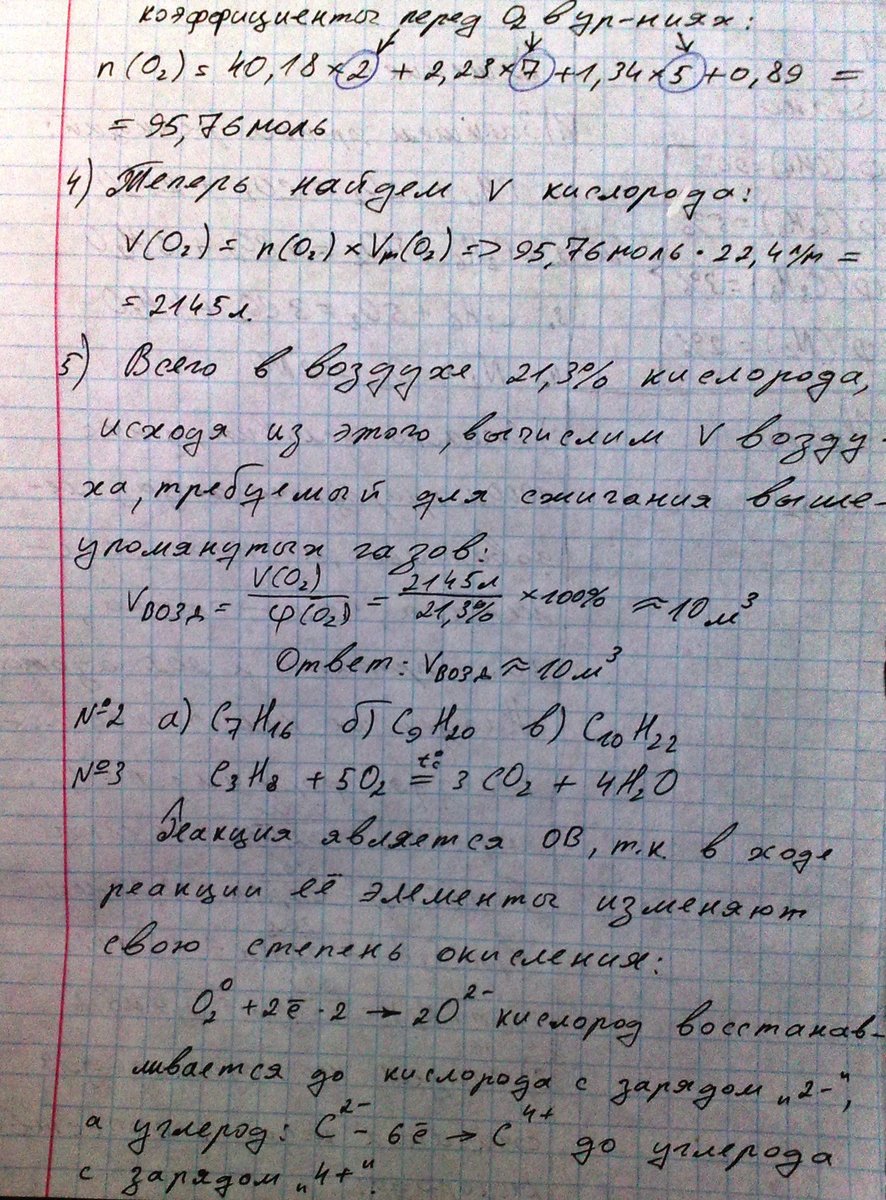 коэффициенты перед O₂ в ур-ниях:
n(O₂) = 40,18×2 + 2,23×7 + 1,34×5 + 0,89 =
= 95,76 моль
4) Теперь найдем V кислорода:
V(O₂) = n(O₂) × Vm(O₂) => 95,76 моль · 22,4 л/м =
= 2145 л.
5) Всего в воздухе 21,3% кислорода,
исходя из этого, вычислим V возду-
ха, требуемый для сжигания выше-
упомянутых газов:
Vвозд = V(O₂)/φ(O₂) = 2145л/21,3% ×100% ≈ 10 м³
Ответ: Vвозд ≈ 10 м³
№2 а) C₇H₁₆ б) C₉H₂₀ в) C₁₀H₂₂
№3 C₃H₈ + 5O₂ =(t°c) 3CO₂ + 4H₂O
Реакция является ОВ, т.к. в ходе
реакции её элементы изменяют
свою степень окисления:
O₂⁰ + 2ē · 2 → 2O²⁻ кислород восстанав-
ливается до кислорода с зарядом „2-",
а углерод: C²⁻ - 6ē → C⁴⁺ до углерода
с зарядом „4+".